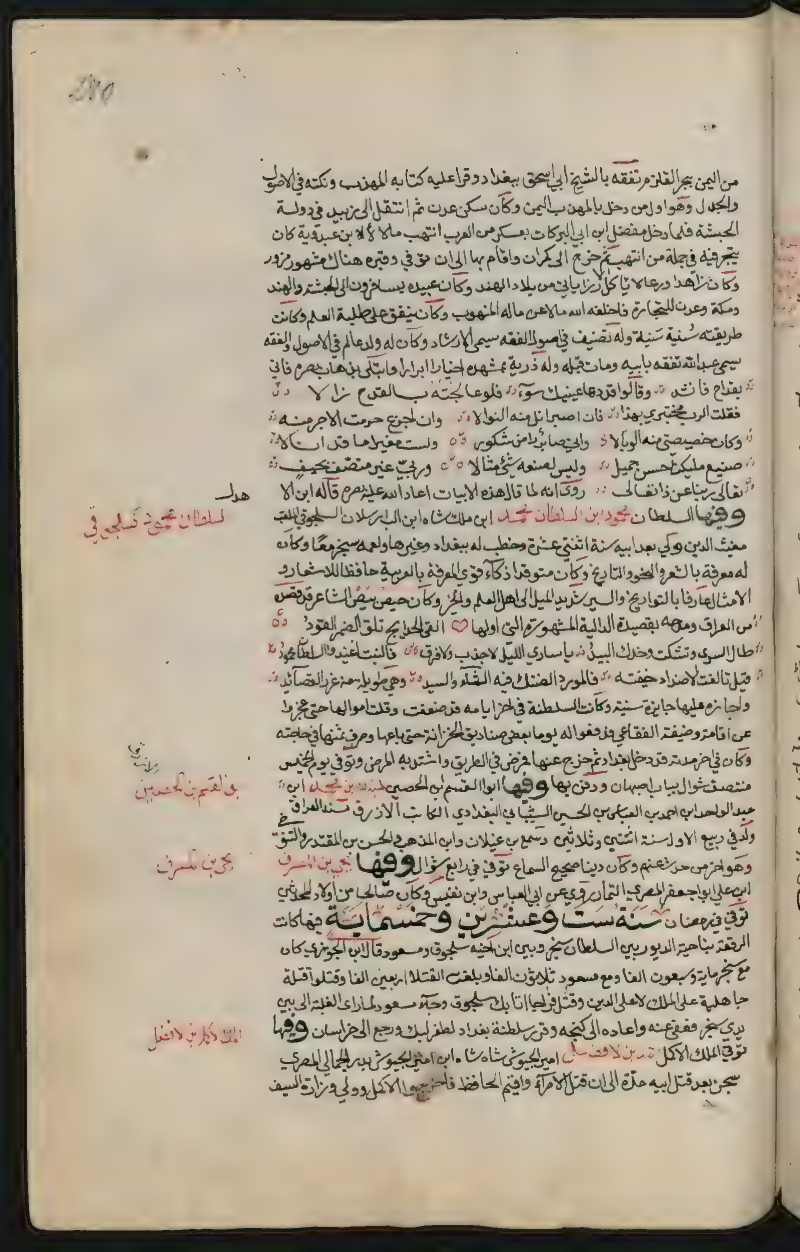 280
من اليمن بحر القلزم تفقه بالشيخ ابي اسحق ببغداد وقرا عليه كتابه المهذب ونكته في الاصول
والجدل وهو اول من دخل بالمهذب اليمن وكان سكن عدن ثم انتقل الى زبيد في دولة
الحبشة فلما دخل مفضل ابن ابي البركات بعسكر من العرب انتهب مالا لابن عبدوية كان
يتجر فيه في جملة من انتهب ثم خرج الى كمران واقام بها الى ان توفي وقبره هناك مشهور مزور
وكان زاهدا ورعا لا ياكل الا رزا ياتي من بلاد الهند وكان عبيده يسافرون الى الحبشة والهند
ومكة وعدن للتجارة فاخلفه الله مالا عن ماله المنهوب وكان ينفق على طلبة العلم وكانت
طريقته سنية سنية وله تصنيف في اصول الفقه سمي الارشاد وكان له ولد عالم في الاصول والفقه
سمي عبد الله تفقه بابيه ومات قبله وله ذرية بمشهده اخيارا ابرارا وابتلى بذهاب بصره فاتي
بقداح فانشد وقالوا قد دها عينيك سوء فلو عالجته بالقدح زالا
فقلت الرب مختبري بهذا فان اصبر انل منه النوالا وان اجزع حرمت الاجر منه
وكان خصيصتي منه الوبالا واني صابر راض شكور ولست مغيرا ما قد انالا
صنيع مليكنا حسن جميل وليس لصنعه شئ مثالا وربي غير متصف بحيف
تعالى ربنا عن ذا تعالى روي انه لما قال هذه الابيات اعاد الله عليه بصره قاله ابن الا
هدل
وفيها السلطان محمود ابن السلطان محمد ابن ملك شاه ابن الب ارسلان السلجوقي الملقب
السلطان محمود السلجوقي
مغيث الدين ولي بعد ابيه سنة اثنتي عشرة وخطب له ببغداد وغيرها ولعمه سنجر معا وكان
له معرفة بالشعر والنحو والتاريخ وكان متوقدا ذكاء قوي المعرفة بالعربية حافظا للاشعار و
الامثال عارفا بالتواريخ والسير شديد الميل الى اهل العلم والخير وكان حيص بيص الشاعر قد قصده
من العراق ومدحه بقصيدة الدالية المشهورة التي اولها الق الحدايج تلق الضمر القود
طال السرى وتشكت وخدك البيد يا ساري الليل لا جدب ولا فرق فالنبت اغيد والسلطان محمود
قيل تالفت الاضداد خيفته فالمورد الضنك فيه الشاء والسيد وهي طويلة من غرر القصائد
واجازه عليها جايزة سنية وكانت السلطنة في اخر ايامه قد ضعفت وقلت اموالها حتى عجزوا
عن اقامة وظيفة الفقاعي فدفعوا له يوما بعض صناديق الخزانة حتى باعها وصرف ثمنها في حاجته
وكان في اخر مدته قد دخل بغداد ثم خرج عنها فمرض في الطريق واشتد به المرض وتوفي يوم الخميس
منتصف شوال بباب اصبهان ودفن بها وفيها ابوا القسم ابن الحصين هبة الله بن محمد ابن
ابو القسم بن الحصين
عبد الواحد ابن احمد بن العباس بن الحسين الشيباني البغدادي الكاتب الازرق مسند العراق
ولد في ربيع الاول سنة اثنتي وثلاثين وسمع من غيلان وابن المذهب والحسن بن المقتدر والتنوخي
وهو اخر من حدث عنهم وكان دينا صحيح السماع توفي في رابع شوال وفيها يحيى بن المشرف
يحيى بن المشرف
ابن علي ابو جعفر المصري التمار روي عن ابي العباس وابن نفيس وكان صالحا من اولاد المحدثين
توفي في رمضان سنة ست وعشرين وخمسماية فيها كانت
الوقعة بناحية الدينور بين السلطان سنجر وبين ابن اخيه سلجوق ومسعود قال ابن الجوزي كان
مع سنجر ماية وسبعون الفا ومع مسعود ثلاثون الفا وبلغت القتلا اربعين الفا وقتلوا قتلة
جاهلية على الملك لا على الدين وقتل قراجا اتابك سلجوق وجاء مسعود لما راى الغلبة الى بين
يدي سنجر فعفى عنه واعاده الى كنجه وقرر سلطنة بغداد لطغرلبك ورجع الى خراسان وفيها
الملك الاكمل بن الافضل
توفي الملك الاكمل احمد بن الافضل امير الجيوش شاه شاه ابن امير الجيوش بدر الجمالي المصري
سجن بعد قتل ابيه مدة الى ان قتل الامر واقيم الحافظ فاخرجوا الاكمل وولي وزارة السيف